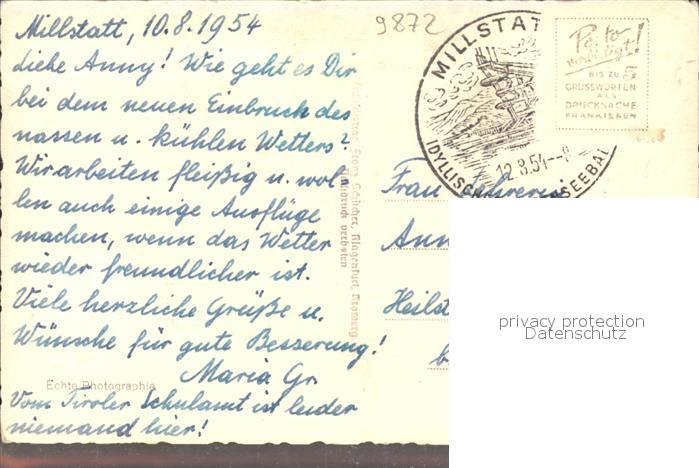 Millstatt, 10.8.1954
9872
Liebe Anny! Wie geht es Dir
bei dem neuen Einbruch des
nassen u. kühlen Wetters?
Wir arbeiten fleißig u. wol=
len auch einige Ausflüge
machen, wenn das Wetter
wieder freundlicher ist.
Viele herzliche Grüße u.
Wünsche für gute Besserung!
Maria Gr.
Vom Tiroler Schulamt ist leider
niemand hier!
Echte Photographie
Franz Schilcher, Klagenfurt,
Nachdruck verboten
MILLSTAT
IDYLLISCH
SEEBAD
12.8.54
BIS ZU 5
GRUSSWORTEN
ALS
DRUCKSACHE
FRANKIEREN
Frau Lehrerin
Ann
Heilst
b
privacy protection
Datenschutz